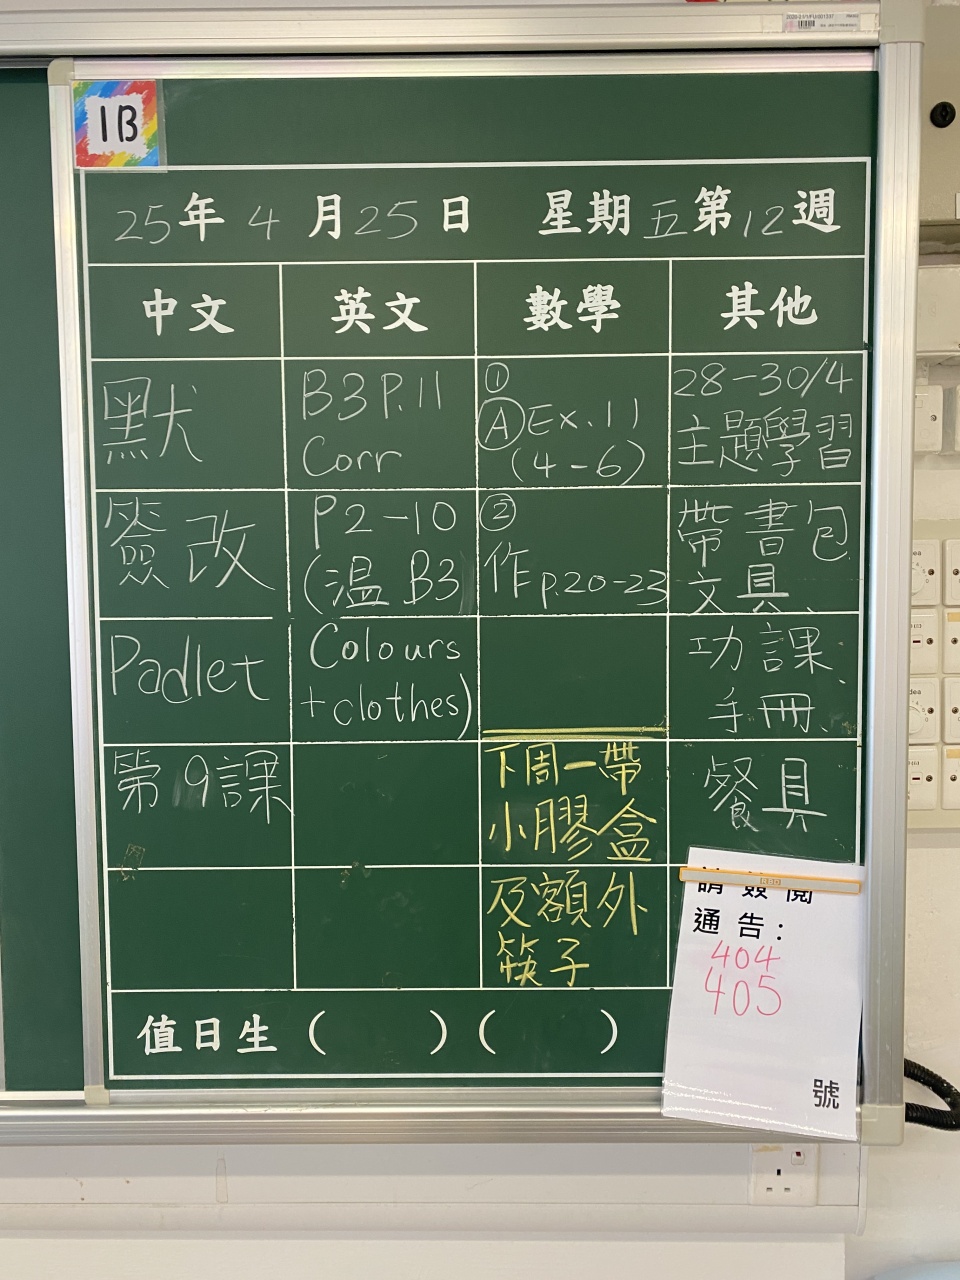 1B
25年4月25日 星期五第12週
中文 英文 數學 其他
默
簽改
Padlet
第9課
B3P.11
Corr
P2-10
(温 B3
Colours
+clothes)
①
Ⓐ Ex.11
(4-6)
②
作 p.20-23
下周一帶
小膠盒
及額外
筷子
28-30/4
主題學習
帶書包
文具、
功課、
手冊、
餐具
請簽閱
通告：
404
405
號
值日生 ( ) ( )